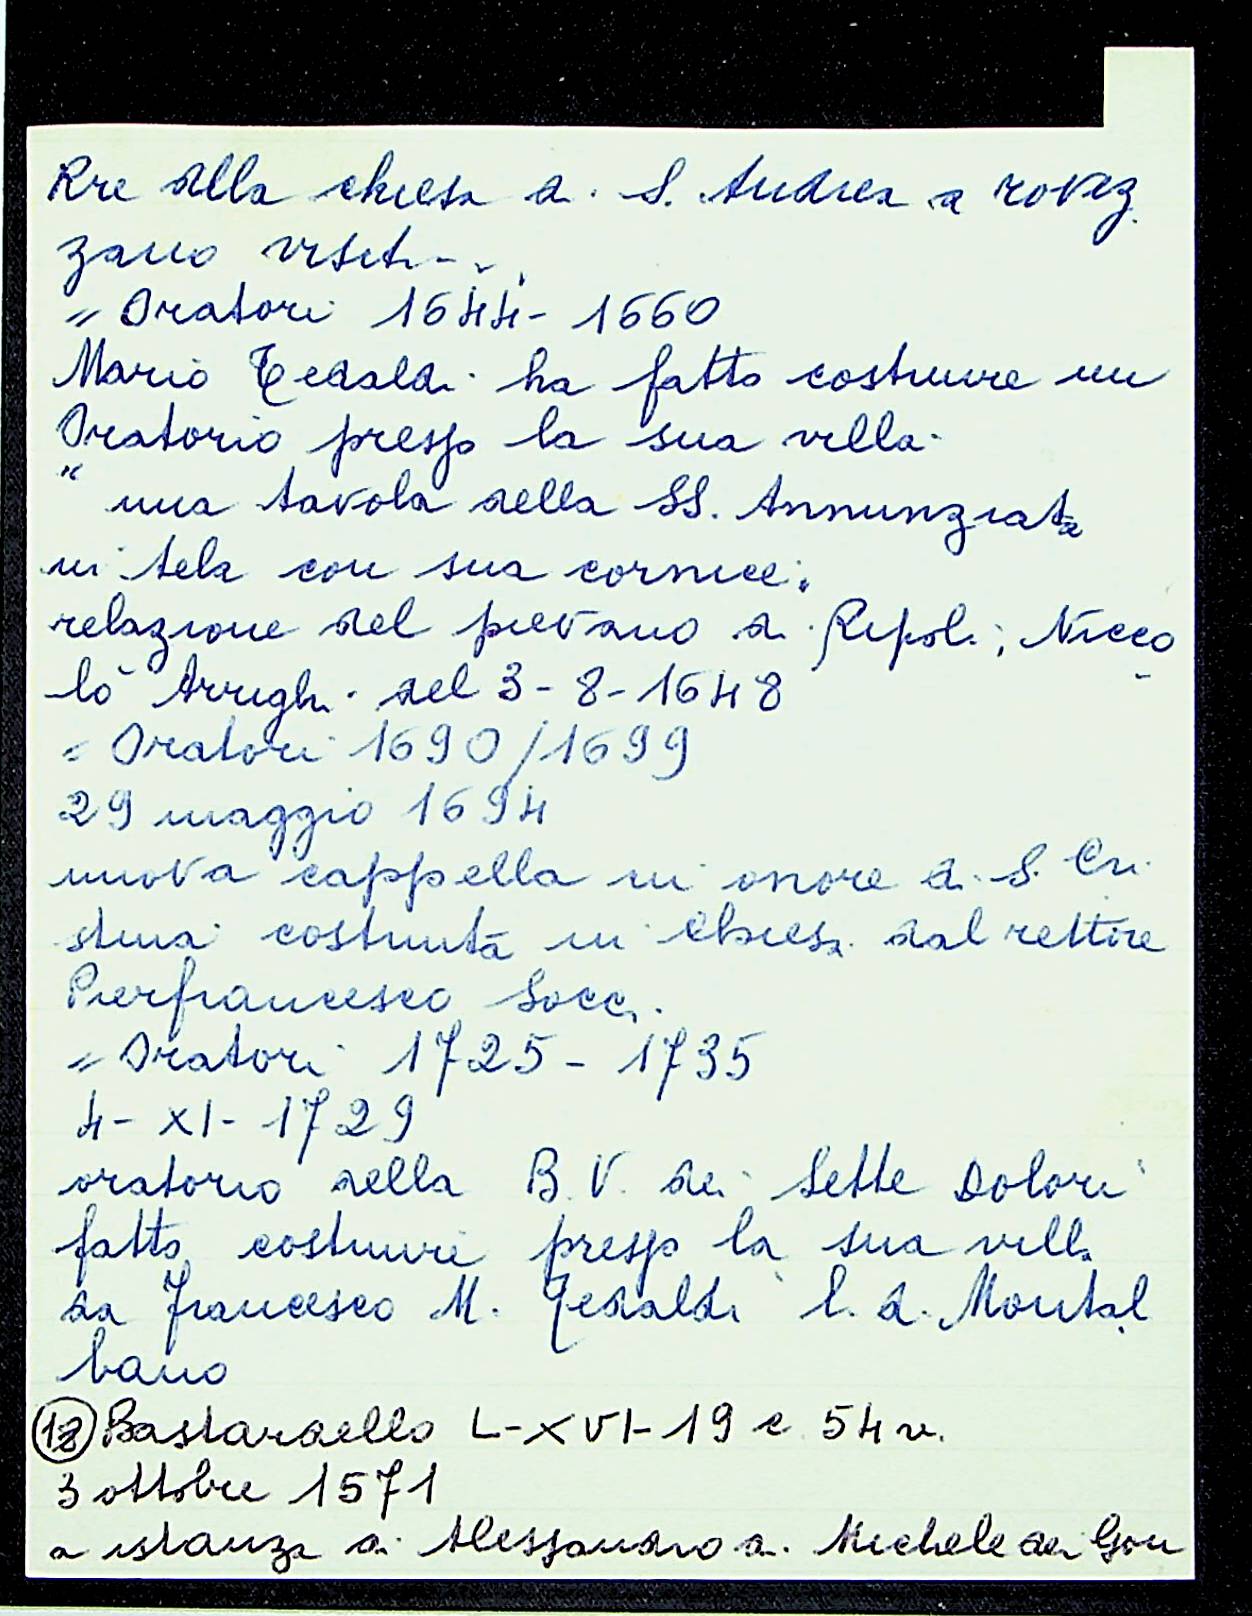 Rre alla chiesa di S. Andrea a rovez
zano visit...
" Oratori 1644 - 1660
Mario Tedaldi ha fatto costruire un
Oratorio presso la sua villa
" una tavola della SS. Annunziata
in tela con sua cornice.
relazione del pievano di Ripoli, Nicco
lò Arrighi del 3-8-1648
" Oratori 1690/1699
29 maggio 1694
nuova cappella in onore di S. Cri
stina costruita in chiesa dal rettore
Pierfrancesco Socci.
" Oratori 1725 - 1735
4-XI-1729
oratorio della B.V. dei Sette Dolori
fatto costruire presso la sua villa
da Francesco M. Tedaldi l. d. Montal
bano
Bastardello L-XVI-19 c 54 v.
3 ottobre 1571
a istanza di Alessandro di Michele dei Gon